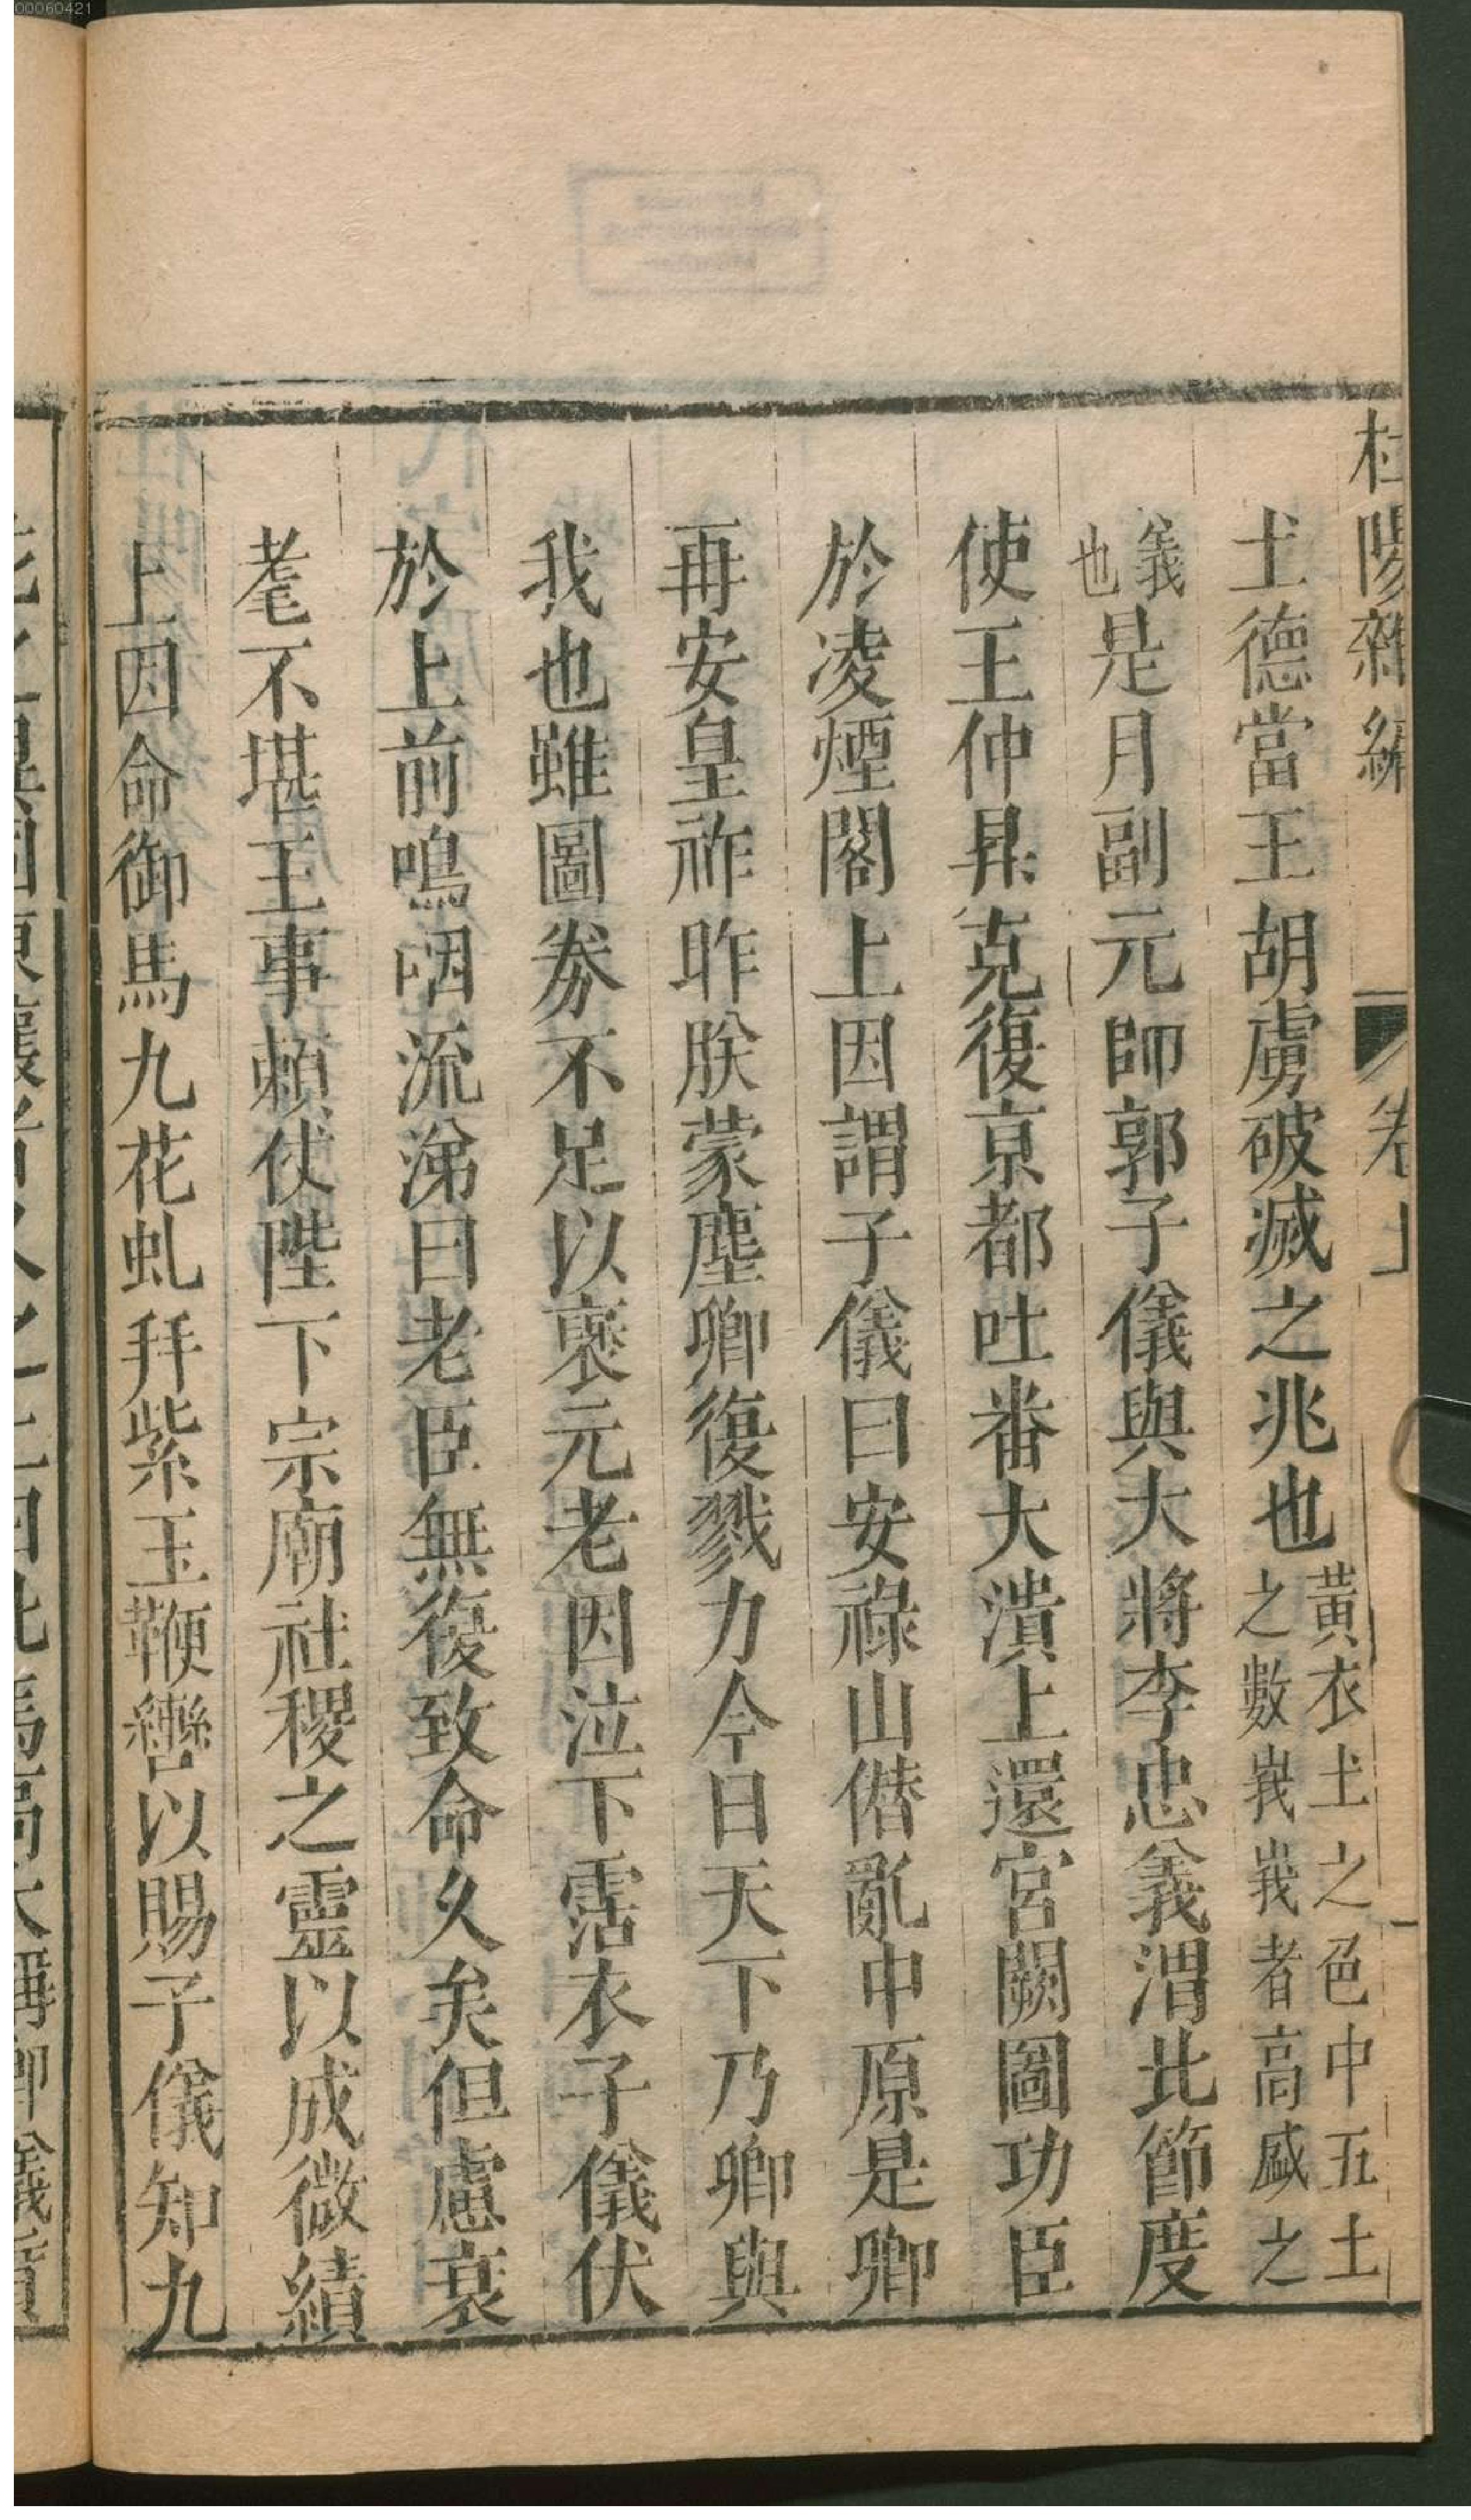 杜陽雜編 卷上
土德當王胡虜破滅之兆也黃衣土之色中五土之數峩峩者高盛之
義也是月副元帥郭子儀與大將李忠義渭北節度
使王仲昇克復京都吐番大潰上還宮闕圖功臣
於凌煙閣上因謂子儀曰安祿山僭亂中原是卿
再安皇祚昨朕蒙塵卿復戮力今日天下乃卿與
我也雖圖券不足以褒元老因泣下霑衣子儀伏
於上前嗚咽流涕曰老臣無復致命久矣但慮衰
耄不堪王事賴仗陛下宗廟社稷之靈以成微績
上因命御馬九花虬拜紫玉鞭轡以賜子儀知九
00060421